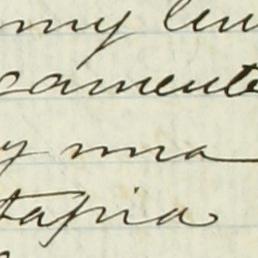 my len
camente
y una
tapia